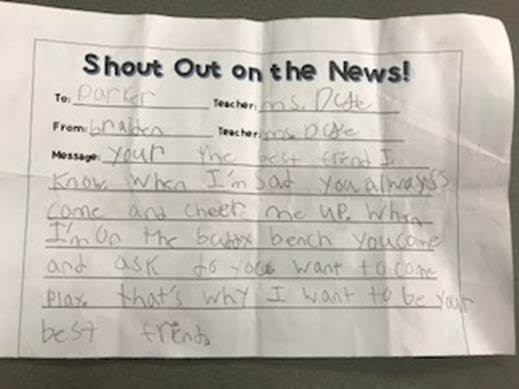 Shout Out on the News!
To: Parker Teacher: ms. Dute
From: braiden Teacher: ms. Dute
Message: your the best friend I
know. When I'm sad you always
come and cheer me up. When
I'm on the buddy bench you come
and ask do you want to come
Play. that's why I want to be your
best friend.